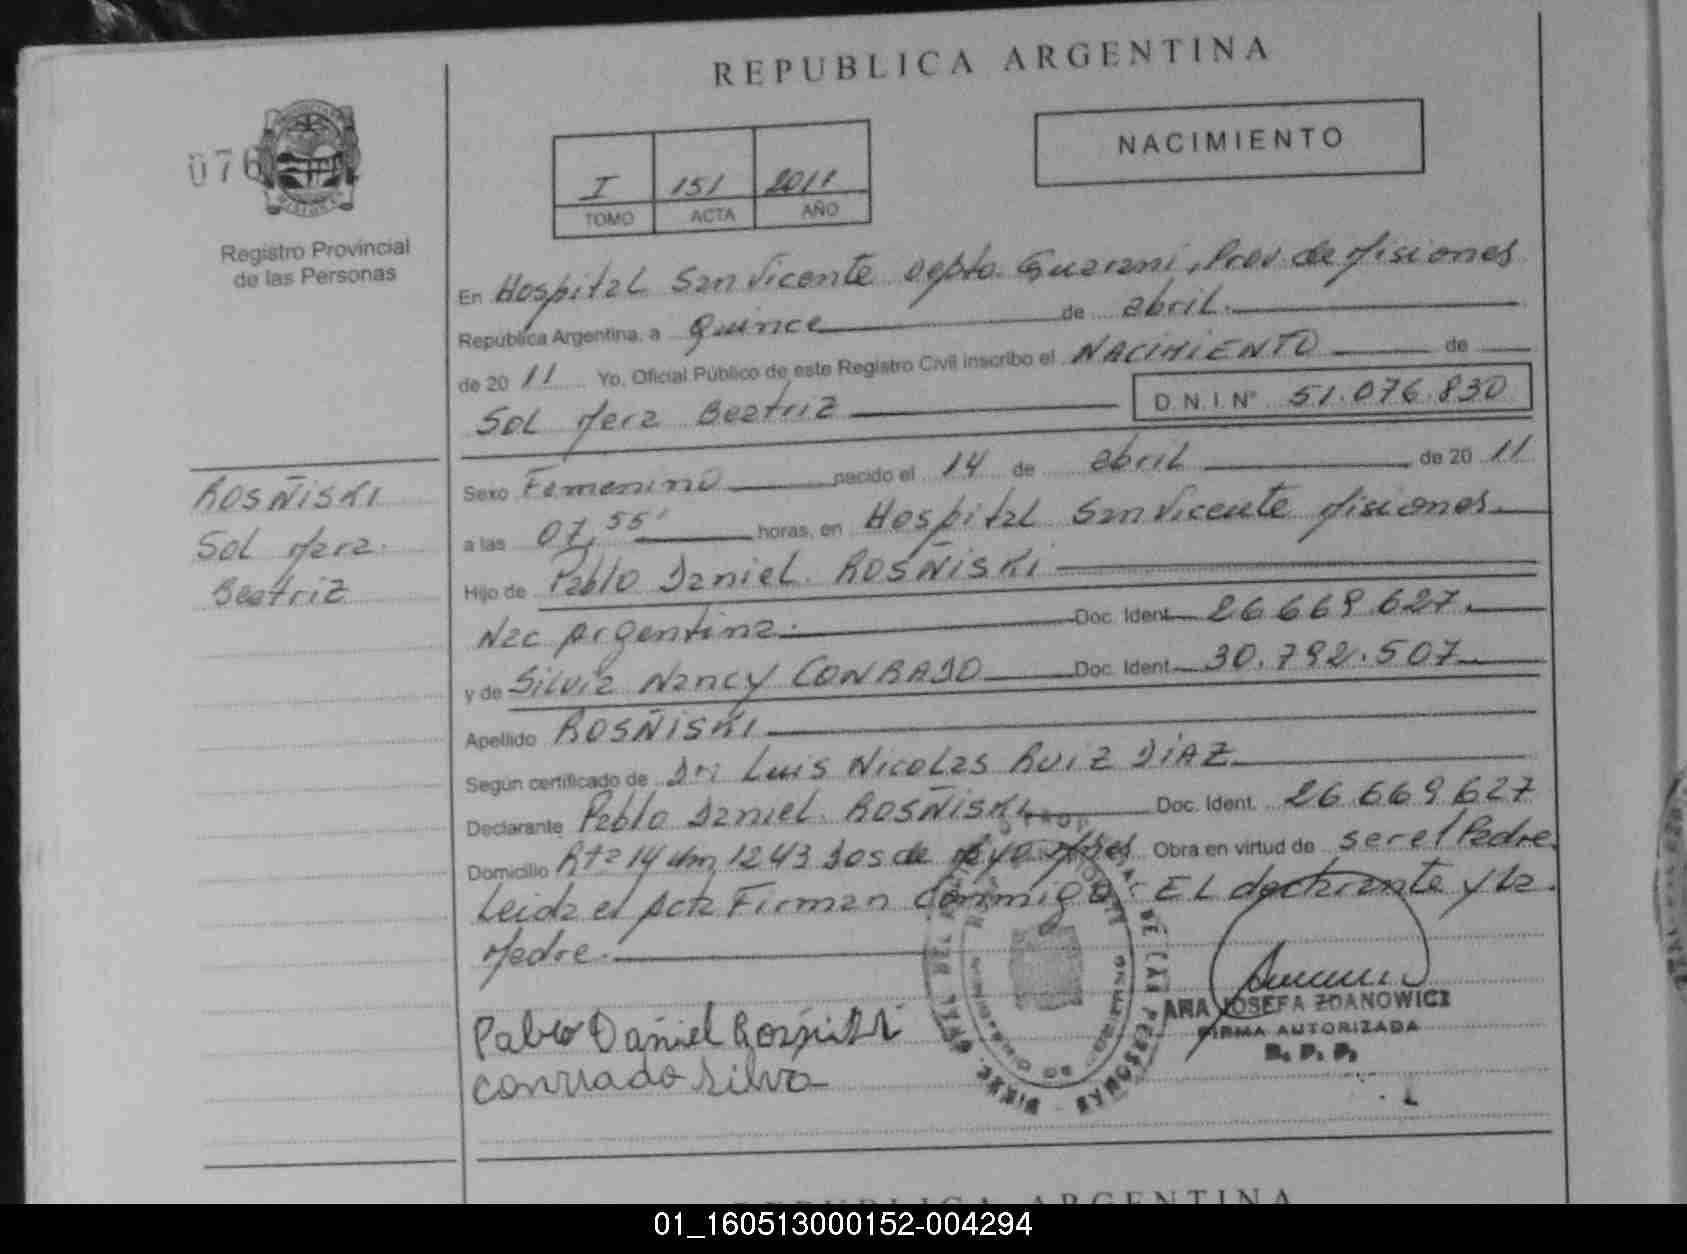 REPUBLICA ARGENTINA
NACIMIENTO
076
I 151 2011
TOMO ACTA AÑO
Registro Provincial
de las Personas
En Hospital San Vicente Depto. Guarani, Prov. de Misiones
República Argentina, a Quince de abril.
de 20 11 Yo, Oficial Público de este Registro Civil inscribo el NACIMIENTO de
Sol Mara Beatriz D.N.I. Nº 51.076.830
Sexo Femenino nacido el 14 de abril de 20 11
a las 07,55' horas, en Hospital San Vicente Misiones
Hijo de Pablo Daniel ROSÑISKI
Nac Argentina. Doc. Ident. 26.669.627.
y de Silvia Nancy CONRADO Doc. Ident. 30.792.507
Apellido ROSÑISKI
Según certificado de Dr: Luis Nicolas RUIZ DIAZ
Declarante Pablo Daniel ROSÑISKI Doc. Ident. 26.669.627
Domicilio Rta 14 km 1243 Dos de Mayo Mnes Obra en virtud de ser el Padre.
Leida el Acta Firman conmigo: EL declarante y la
Madre.
ROSÑISKI
Sol Mara
Beatriz
Pablo Daniel Rosñiski
Conrado Silva
ANA JOSEFA ZDANOWICZ
FIRMA AUTORIZADA
R. P. P.
DE LAS PERSONAS
REPUBLICA ARGENTINA
01_160513000152-004294